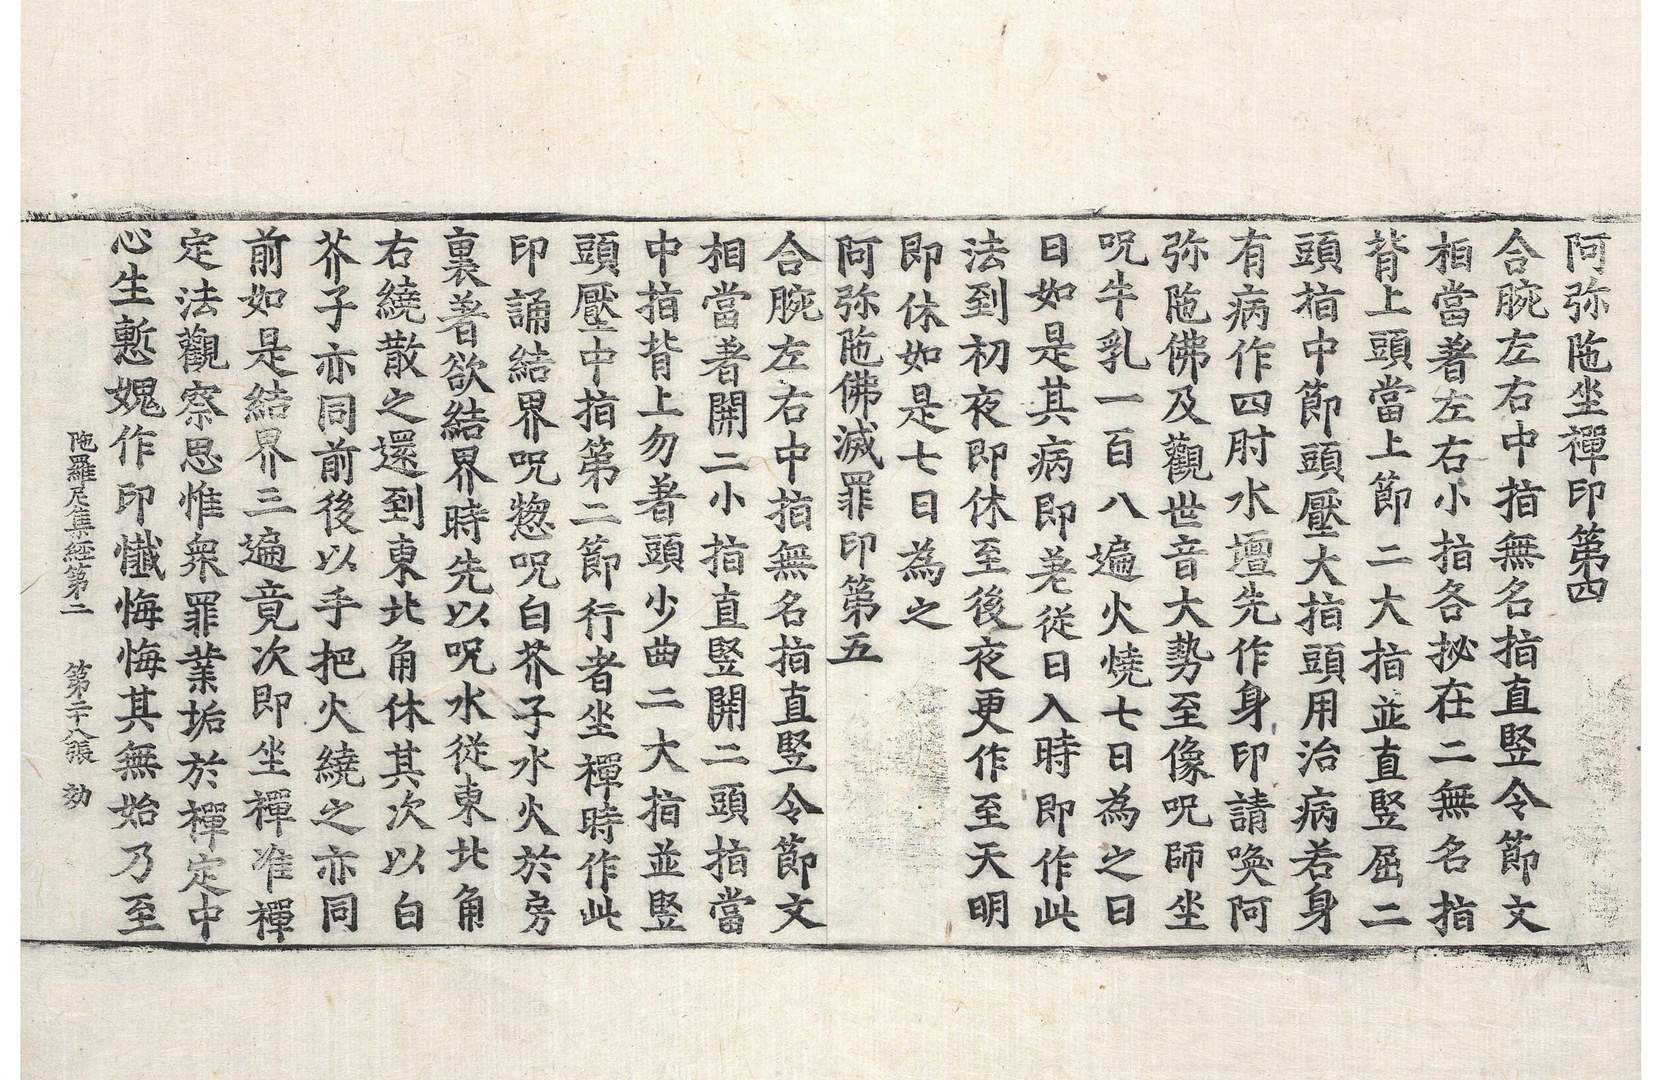 阿弥陁坐禪印第四
合腕左右中指無名指直竪令節文
相當著左右小指各拟在二無名指
背上頭當上節二大指並直竪屈二
頭指中節頭壓大指頭用治病若身
有病作四肘水壇先作身印請喚阿
弥陁佛及觀世音大勢至像呪師坐
呪牛乳一百八遍火燒七日為之日
日如是其病即差従日入時即作此
法到初夜即休至後夜更作至天明
即休如是七日為之
阿弥陁佛滅罪印第五
合腕左右中指無名指直竪令節文
相當著開二小指直竪開二頭指當
中指背上勿著頭少曲二大指並竪
頭壓中指第二節行者坐禪時作此
印誦結界呪惣呪白芥子水火於房
裏著欲結界時先以呪水従東北角
右繞散之還到東北角休其次以白
芥子亦同前後以手把火繞之亦同
前如是結界三遍竟次即坐禪准禪
定法觀察思惟衆罪業垢於禪定中
心生慙愧作印懺悔悔其無始乃至
陁羅尼集經第二 第二十八張 効